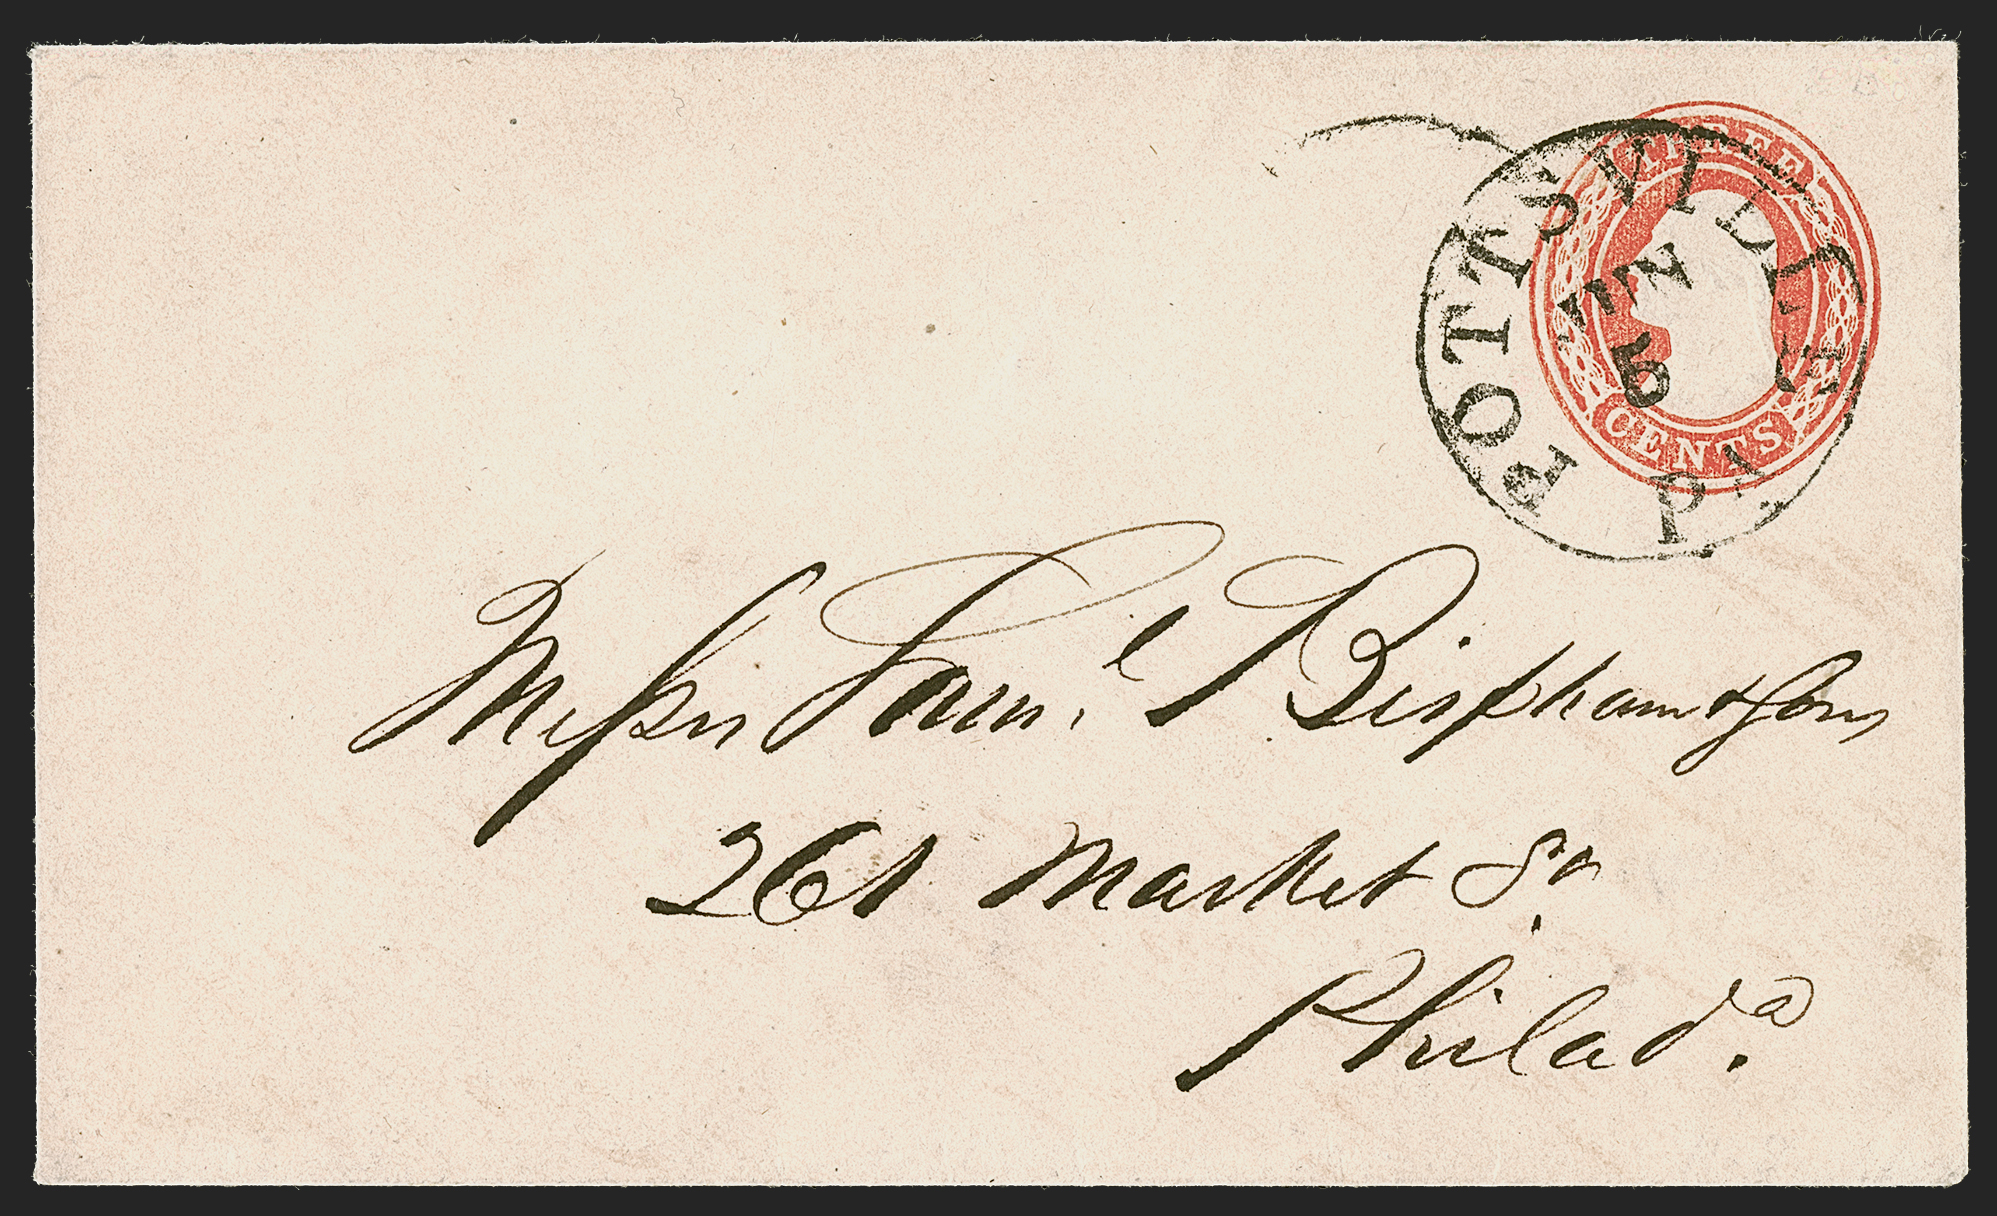 THREE
CENTS
POTTSVILLE
Pa
Messrs Saml Bispham & Sons
261 Market St.
Philada.